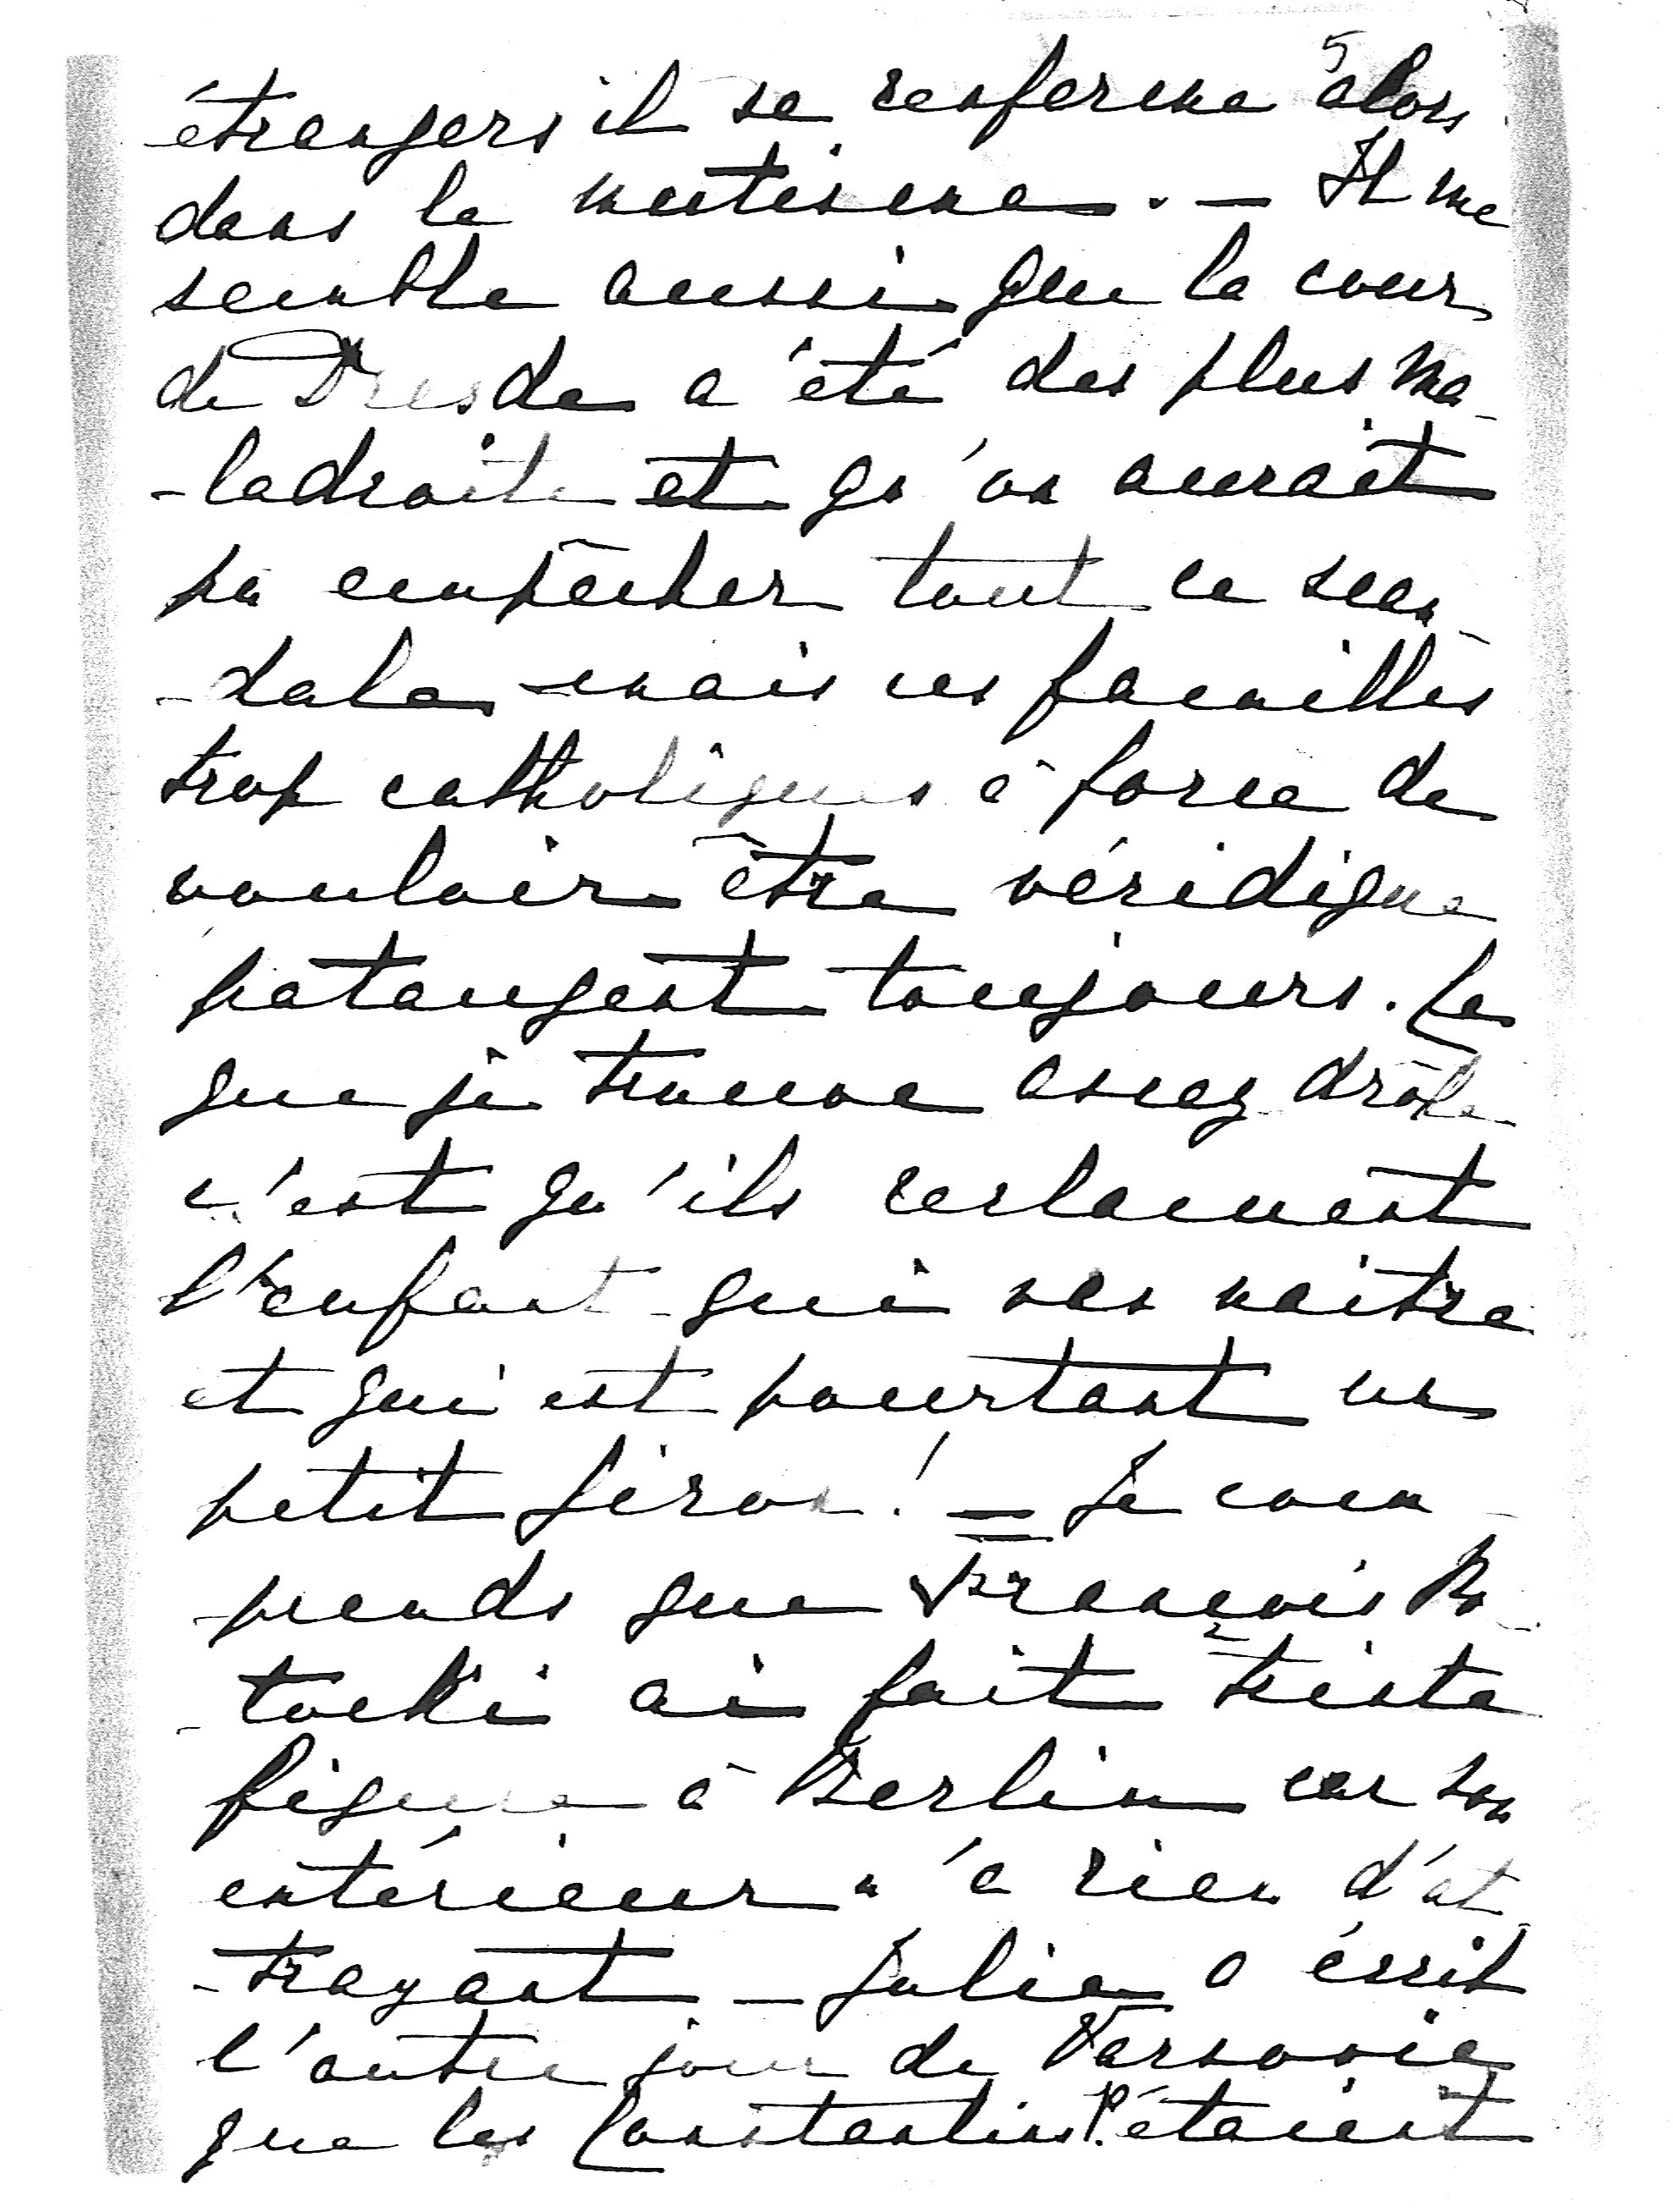 5
étrangers il se renferme alors
dans le mutisme. — Il me
semble aussi que la cour
de Dresde a été des plus ma-
-ladroite et qu'on aurait
pu empêcher tout ce scan-
-dale mais ces familles
trop catholiques à force de
vouloir être véridique
pataugent toujours. Ce
que je trouve assez drôle
c'est qu'ils reclament
l'enfant qui va naître
et qui est pourtant un
petit Giron! — Je com-
-prends que François Po-
-tocki ai fait triste
figure à Berlin car son
extérieur n'a rien d'at-
-trayant — Julie a écrit
l'autre jour de Varsovie
que les Constantins P. étaient